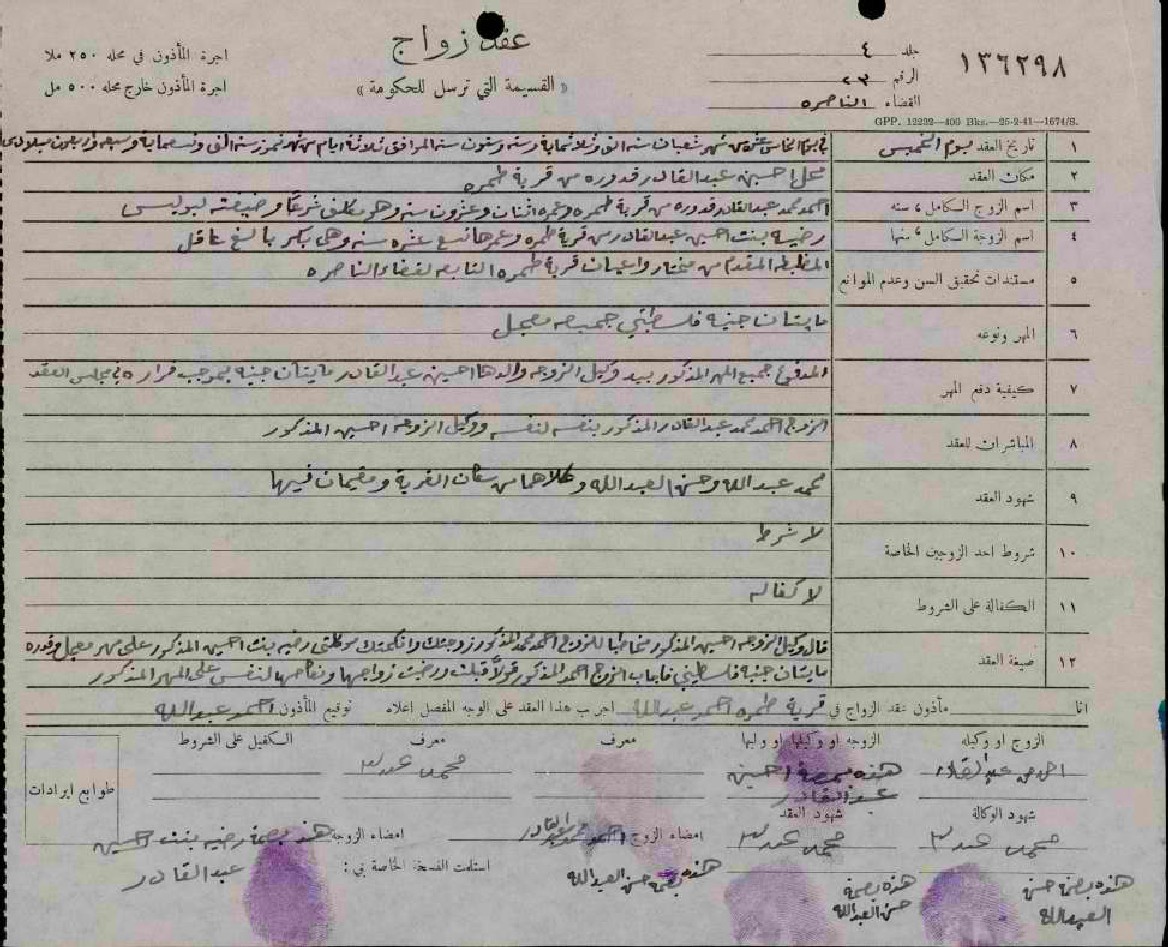 عقد زواج
« القسيمة التي ترسل للحكومة »
اجرة المأذون في محله ٢٥٠ ملا
اجرة المأذون خارج محله ٥٠٠ مل
١٣٦٢٩٨
جلد ٤
الرقم ٢٣
القضاء الناصره
GPP. 12232—400 Bks.—25-2-41—1674/S.
١ تاريخ العقد يوم الخميس في يوم الخامس عشر من شهر شعبان سنه الف وثلاثماية وسته وستون سنه الموافق ثلاثة ايام من شهر تموز سنه الف وتسعماية وسبعه واربعون ميلادي
٢ مكان العقد محل احسين عبدالقادر قدوره من قرية طمره
٣ اسم الزوج الكامل ، سنه احمد محمد عبدالقادر قدوره من قرية طمره وعمره اثنان وعشرون سنه وهو مكلف شرعاً وضيفته بوليس
٤ اسم الزوجة الكامل ، سنها رضيه بنت احسين عبدالقادر من قرية طمره وعمرها تسع عشره سنه وهي بكر بالغ عاقل
٥ مستندات تحقيق السن وعدم الموانع المظبطه المقدمه من مختار واعيان قرية طمره التابعه لقضاء الناصره
٦ المهر ونوعه مايتان جنيه فلسطيني جميعه معجل
٧ كيفية دفع المهر المدفوع جميع المهر المذكور بيد وكيل الزوجه والدها احسين عبدالقادر مايتان جنيه بموجب قراره في مجلس العقد
٨ المباشران للعقد الزوج احمد محمد عبدالقادر المذكور بنفسه لنفسه ووكيل الزوجه احسين المذكور
٩ شهود العقد محمد عبدالله وحسن العبدالله وكلاهما من سكان القرية ومقيمان فيها
١٠ شروط احد الزوجين الخاصة لا شرط
١١ الكفالة على الشروط لا كفاله
١٢ صيغة العقد قال وكيل الزوجه احسين المذكور مخاطبا للزوج احمد محمد المذكور زوجتك وانكحتك موكلتي رضيه بنت احسين المذكور على مهر معجل وقدره
مايتان جنيه فلسطيني فاجاب الزوج احمد المذكور قولاً قبلت ورضيت زواجها ونكاحها لنفسي على المهر المذكور
انا مأذون عقد الزواج في قرية طمره احمد عبدالله اجريت هذا العقد على الوجه المفصل اعلاه توقيع المأذون احمد عبدالله
الزوج او وكيله
الزوجه او وكيلها او وليها
معرف
معرف
الكفيل على الشروط
هذه بصمة احسين
عبدالقادر
طوابع ايرادات
شهود الوكالة
شهود العقد
امضاء الزوج احمد محمد عبدالقادر
امضاء الزوجه هذه بصمة رضيه بنت احسين
عبدالقادر
استلمت النسخة الخاصة بي :
هذه بصمة حسن العبدالله
هذه بصمة
حسن العبدالله
هذه بصمة حسن
العبدالله